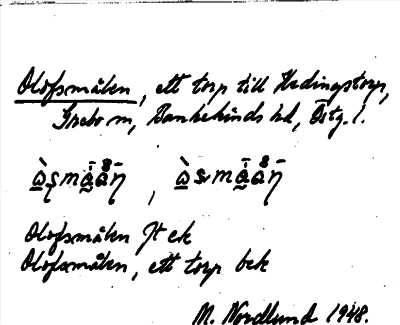 Olofsmålen, ett torp till Hedingstorp,
Grebo sn, Bankekinds hd, Östg. l.
Olofsmålen Jt ek
Olofsmålen, ett torp bek
M. Nordlund 1948.